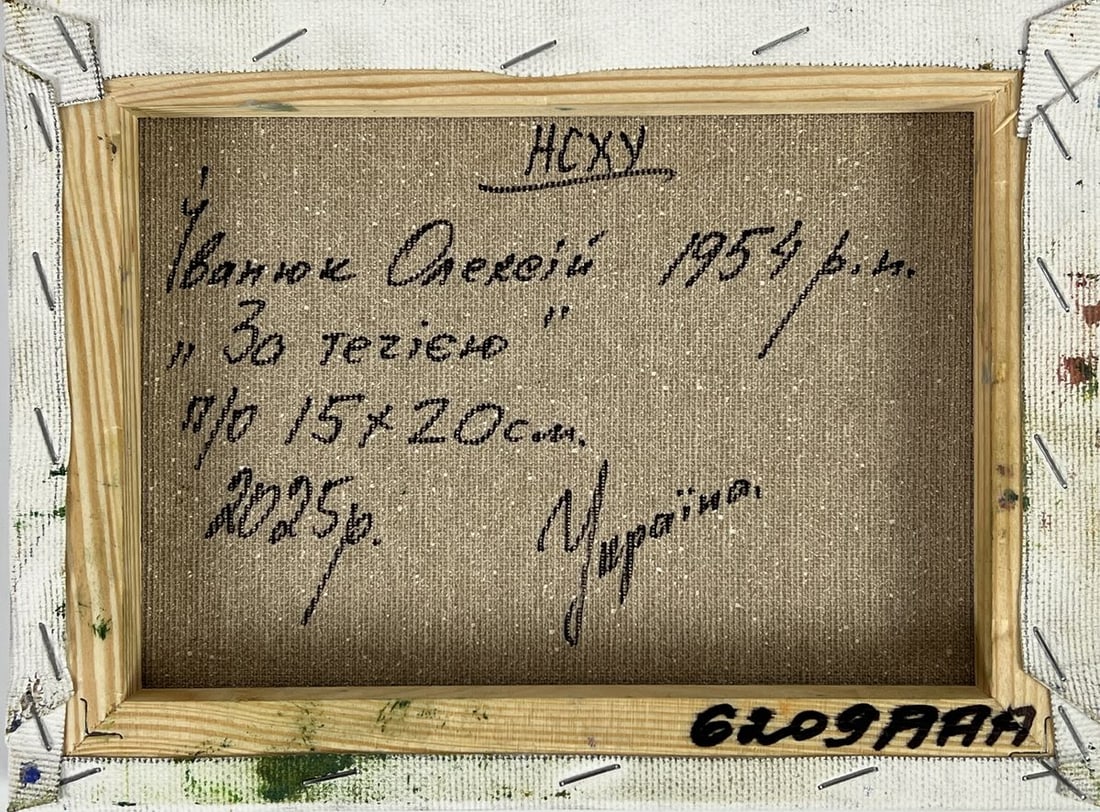 НСХУ
Іванюк Олексій 1954 р.н.
„За течією"
п/о 15х20см.
2025р. Україна.
6209AAA